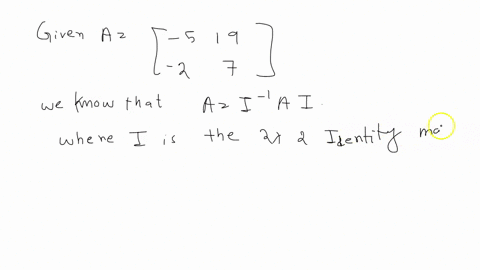 Given A = [ -5 19
-2 7 ]
we know that A = I⁻¹ A I.
where I is the 2x2 Identity ma